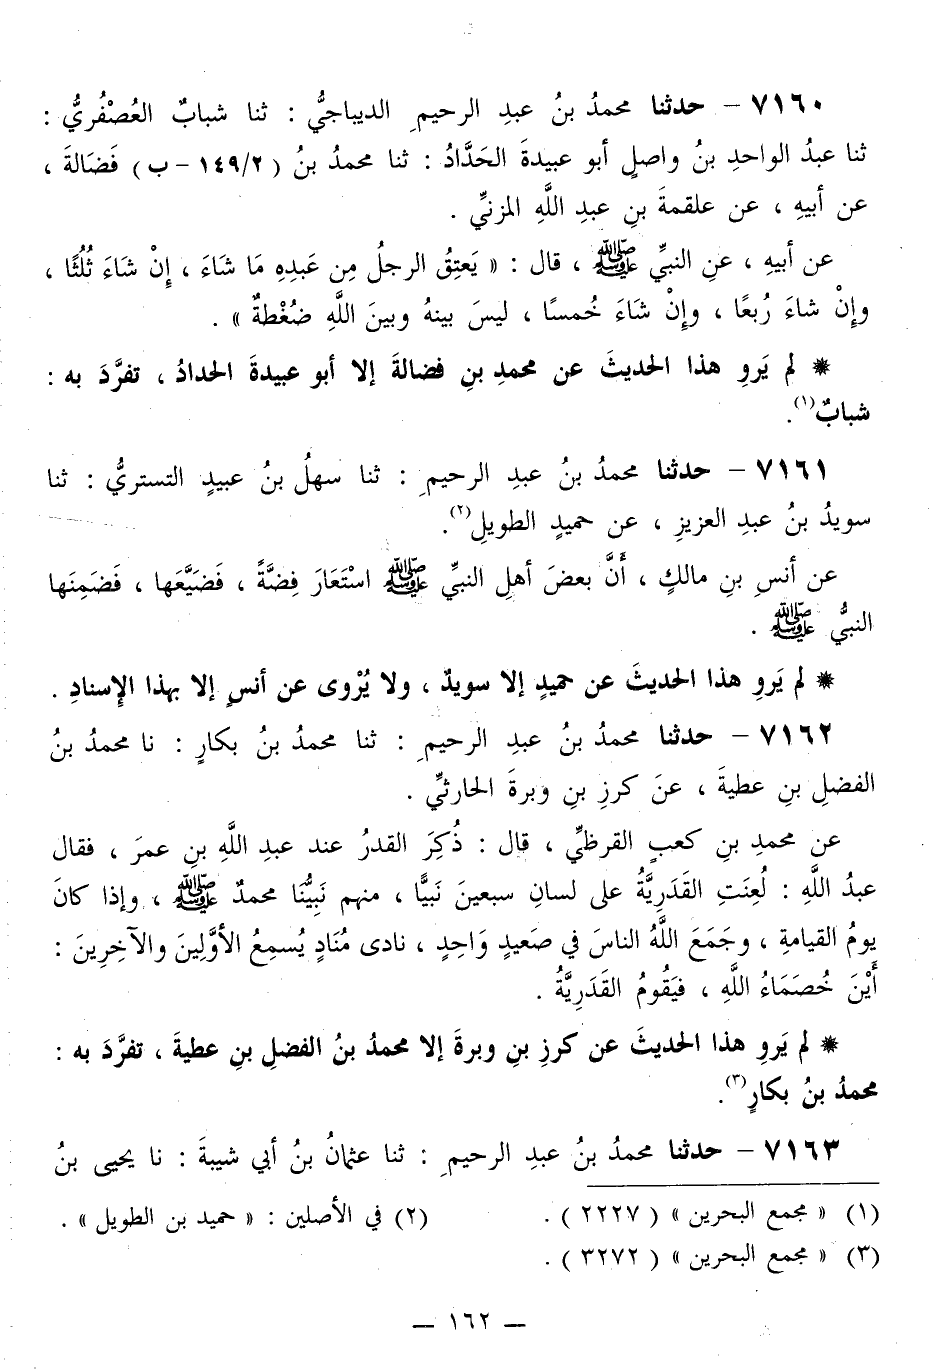 ٧١٦٠ – حدثنا محمدُ بنُ عبدِ الرحيمِ الديباجيُّ : ثنا شبابٌ العُصْفُريُّ :
ثنا عبدُ الواحدِ بنُ واصلٍ أبو عبيدةَ الحَدَّادُ : ثنا محمدُ بنُ ( ١٤٩/٢ – ب ) فَضَالةَ ،
عن أبيهِ ، عن علقمةَ بنِ عبدِ اللَّهِ المزنيِّ .
عن أبيهِ ، عنِ النبيِّ ﷺ ، قال : « يَعتِقُ الرجلُ مِن عَبدِهِ مَا شَاءَ ، إِنْ شَاءَ ثُلُثًا ،
وإِنْ شاءَ رُبعًا ، وإِنْ شَاءَ خُمسًا ، ليسَ بينهُ وبينَ اللَّهِ ضُغْطةٌ » .
* لم يَروِ هذا الحديثَ عن محمدِ بنِ فضالةَ إلا أبو عبيدةَ الحدادُ ، تفرَّدَ به :
شبابٌ(١).
٧١٦١ – حدثنا محمدُ بنُ عبدِ الرحيمِ : ثنا سهلُ بنُ عبيدٍ التستريُّ : ثنا
سويدُ بنُ عبدِ العزيزِ ، عن حميدٍ الطويلِ(٢).
عن أنسِ بنِ مالكٍ ، أَنَّ بعضَ أهلِ النبيِّ ﷺ اسْتَعَارَ فِضَّةً ، فَضَيَّعَها ، فَضَمِنَها
النبيُّ ﷺ .
* لم يَروِ هذا الحديثَ عن حميدٍ إلا سويدٌ ، ولا يُرْوى عن أنسٍ إلا بهذا الإِسنادِ .
٧١٦٢ – حدثنا محمدُ بنُ عبدِ الرحيمِ : ثنا محمدُ بنُ بكارٍ : نا محمدُ بنُ
الفضلِ بنِ عطيةَ ، عنَ كرزِ بنِ وبرةَ الحارثيِّ .
عن محمدِ بنِ كعبٍ القرظيِّ ، قال : ذُكِرَ القدرُ عند عبدِ اللَّهِ بنِ عمرَ ، فقال
عبدُ اللَّهِ : لُعِنَتِ القَدَرِيَّةُ على لسانِ سبعينَ نَبيًّا ، منهم نَبِيُّنَا محمدٌ ﷺ ، وإذا كانَ
يومُ القيامةِ ، وجَمَعَ اللَّهُ الناسَ في صَعيدٍ وَاحِدٍ ، نادى مُنَادٍ يُسمِعُ الأوَّلِينَ والآخِرِينَ :
أَيْنَ خُصَمَاءُ اللَّهِ ، فيَقُومُ القَدَرِيَّةُ .
* لم يَروِ هذا الحديثَ عن كرزِ بنِ وبرةَ إلا محمدُ بنُ الفضلِ بنِ عطيةَ ، تفرَّدَ به :
محمدُ بنُ بكارٍ(٣).
٧١٦٣ – حدثنا محمدُ بنُ عبدِ الرحيمِ : ثنا عثمانُ بنُ أبي شيبةَ : نا يحيى بنُ
(١) « مجمع البحرين » ( ٢٢٢٧ ) . (٢) في الأصلين : « حميد بن الطويل » .
(٣) « مجمع البحرين » ( ٣٢٧٢ ) .
— ١٦٢ —